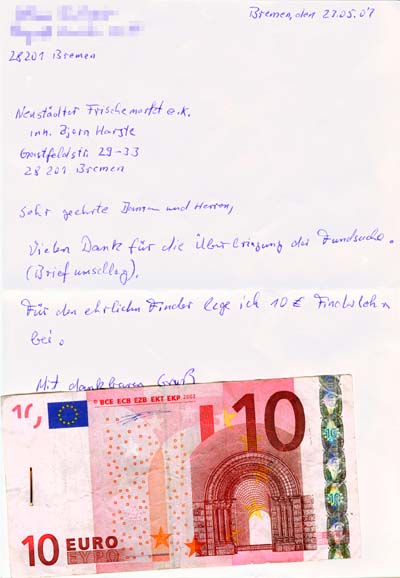 Bremen, den 23.05.07
28201 Bremen
Neustädter Frischemarkt e.K.
inh. Björn Harste
Gastfeldstr. 29-33
28201 Bremen
Sehr geehrte Damen und Herren,
Vielen Dank für die Überbringung der Fundsache.
(Briefumschlag).
Für den ehrlichen Finder lege ich 10 € Finderlohn
bei.
Mit dankbarem Gruß
10 BCE ECB EZB EKT EKP 2002 10
10 EURO
ΕΥΡΩ